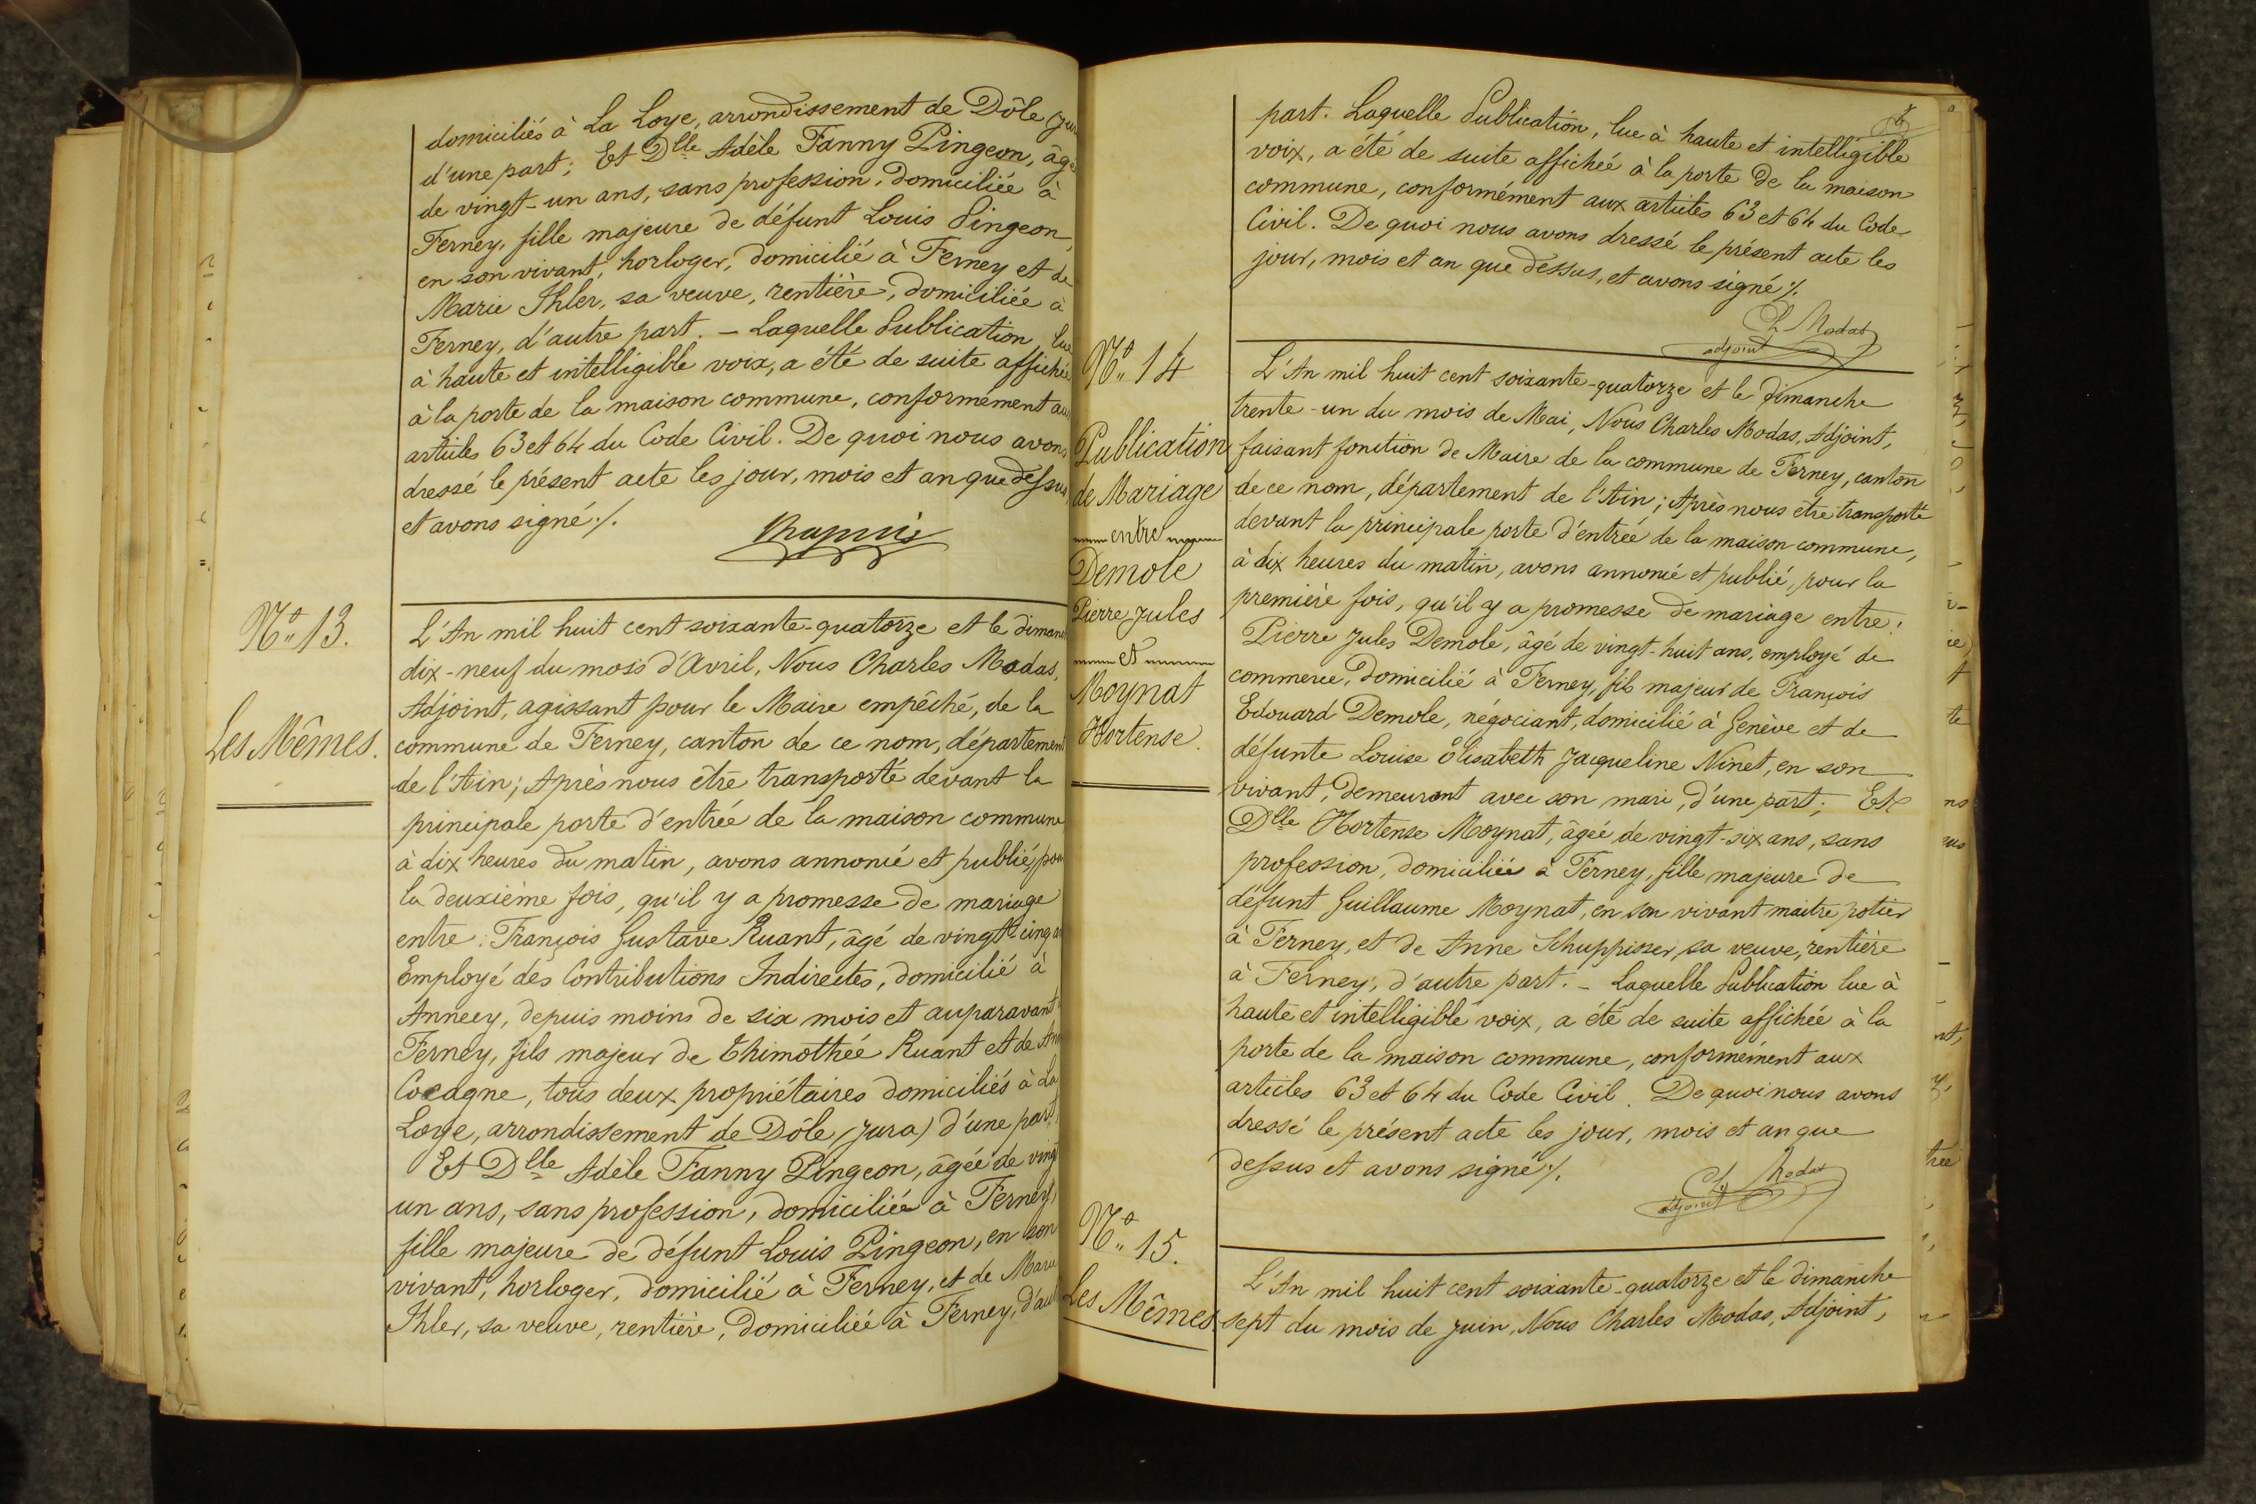 domiciliés à La Loye, arrondissement de Dôle (Jura
d'une part; Et Dlle Adèle Fanny Pingeon, âgée
de vingt-un ans, sans profession, domiciliée à
Ferney, fille majeure de défunt Louis Pingeon,
en son vivant, horloger, domicilié à Ferney et de
Marie Ihler, sa veuve, rentière, domiciliée à
Ferney, d'autre part. — Laquelle Publication, lue
à haute et intelligible voix, a été de suite affichée
à la porte de la maison commune, conformément aux
articles 63 et 64 du Code Civil. De quoi nous avons
dressé le présent acte les jour, mois et an que dessus,
et avons signé ./.
No 13.
Les Mêmes.
L'An mil huit cent soixante-quatorze et le diman
dix-neuf du mois d'Avril, Nous Charles Modas,
Adjoint, agissant pour le Maire empêché, de la
commune de Ferney, canton de ce nom, département
de l'Ain; Après nous être transporté devant la
principale porte d'entrée de la maison commune
à dix heures du matin, avons annoncé et publié, pour
la deuxième fois, qu'il y a promesse de mariage
entre: François Gustave Ruant, âgé de vingt-cinq a
Employé des Contributions Indirectes, domicilié à
Annecy, depuis moins de six mois et auparavant
Ferney, fils majeur de Thimothée Ruant et de Ann
Cocagne, tous deux propriétaires domiciliés à La
Loye, arrondissement de Dôle (Jura) d'une part,
Et Dlle Adèle Fanny Pingeon, âgée de vingt
un ans, sans profession, domiciliée à Ferney,
fille majeure de défunt Louis Pingeon, en son
vivant, horloger, domicilié à Ferney, et de Marie
Ihler, sa veuve, rentière, domiciliée à Ferney, d'aut
part. Laquelle Publication, lue à haute et intelligible
voix, a été de suite affichée à la porte de la maison
commune, conformément aux articles 63 et 64 du Code
Civil. De quoi nous avons dressé le présent acte les
jour, mois et an que dessus, et avons signé ./.
Ch Modas
adjoint
No 14
Publication
de Mariage
entre
Demole
Pierre Jules
et
Moynat
Hortense.
L'An mil huit cent soixante-quatorze et le Dimanche
trente-un du mois de Mai, Nous Charles Modas, Adjoint,
faisant fonction de Maire de la commune de Ferney, canton
de ce nom, département de l'Ain; Après nous être transporté
devant la principale porte d'entrée de la maison commune,
à dix heures du matin, avons annoncé et publié, pour la
première fois, qu'il y a promesse de mariage entre:
Pierre Jules Demole, âgé de vingt-huit ans, employé de
commerce, domicilié à Ferney, fils majeur de François
Edouard Demole, négociant, domicilié à Genève et de
défunte Louise Elisabeth Jacqueline Ninet, en son
vivant, demeurant avec son mari, d'une part; Et
Dlle Hortense Moynat, âgée de vingt-six ans, sans
profession, domiciliée à Ferney, fille majeure de
défunt Guillaume Moynat, en son vivant maitre potier
à Ferney, et de Anne Schuppisser, sa veuve, rentière
à Ferney, d'autre part. — Laquelle Publication lue à
haute et intelligible voix, a été de suite affichée à la
porte de la maison commune, conformément aux
articles 63 et 64 du Code Civil. De quoi nous avons
dressé le présent acte les jour, mois et an que
dessus et avons signé ./.
Ch Modas
adjoint
No 15.
Les Mêmes.
L'An mil huit cent soixante-quatorze et le dimanche
sept du mois de Juin, Nous Charles Modas, Adjoint,